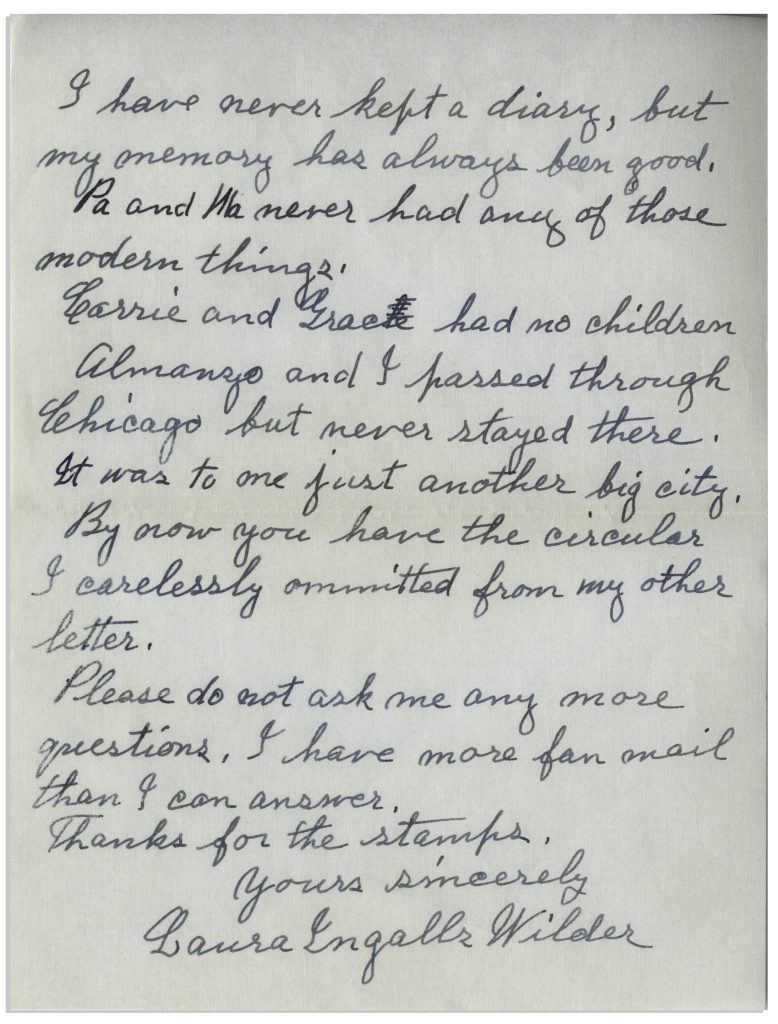 I have never kept a diary, but
my memory has always been good.
Pa and Ma never had any of those
modern things.
Carrie and Grace had no children
Almanzo and I passed through
Chicago but never stayed there.
It was to me just another big city.
By now you have the circular
I carelessly ommitted from my other
letter.
Please do not ask me any more
questions. I have more fan mail
than I can answer.
Thanks for the stamps.
Yours sincerely
Laura Ingalls Wilder